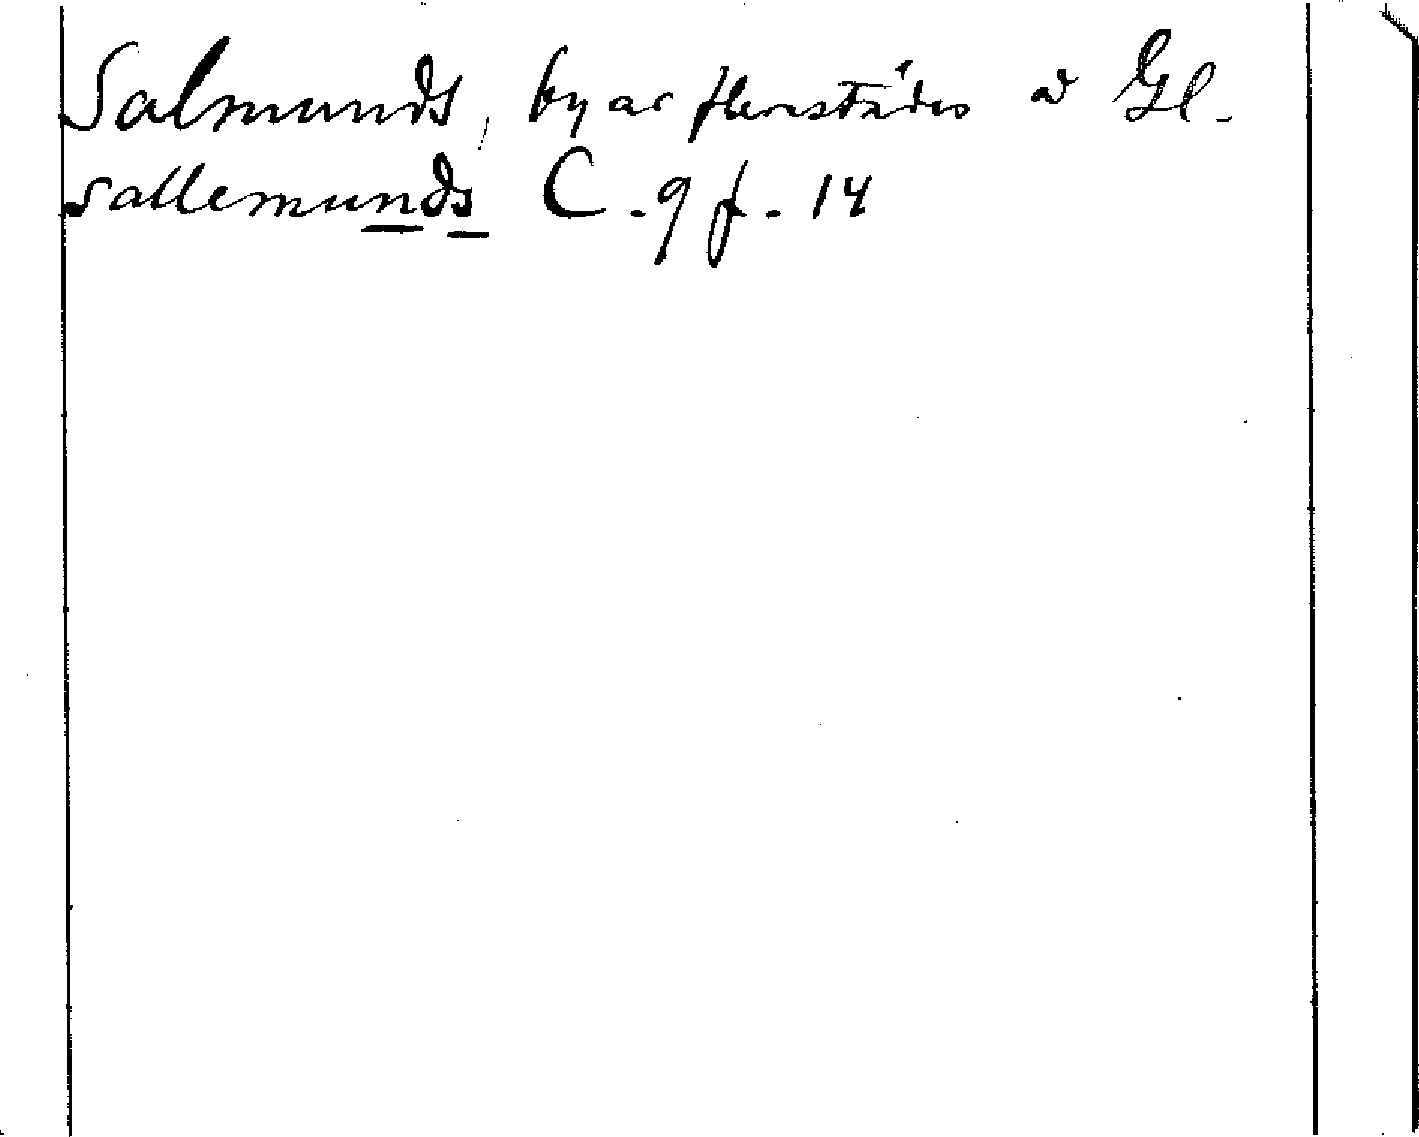 Salmunds, byar flerstädes å Gl.
sallemunds C. 9 f. 14